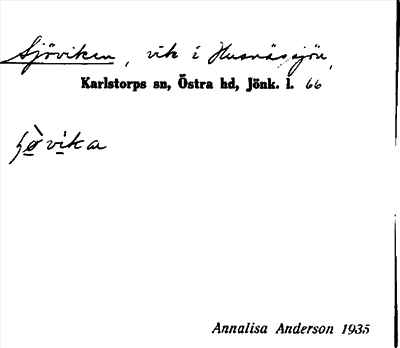 Sjöviken, vik i Husnässjön,
Karlstorps sn, Östra hd, Jönk. l. 66
Annalisa Anderson 1935